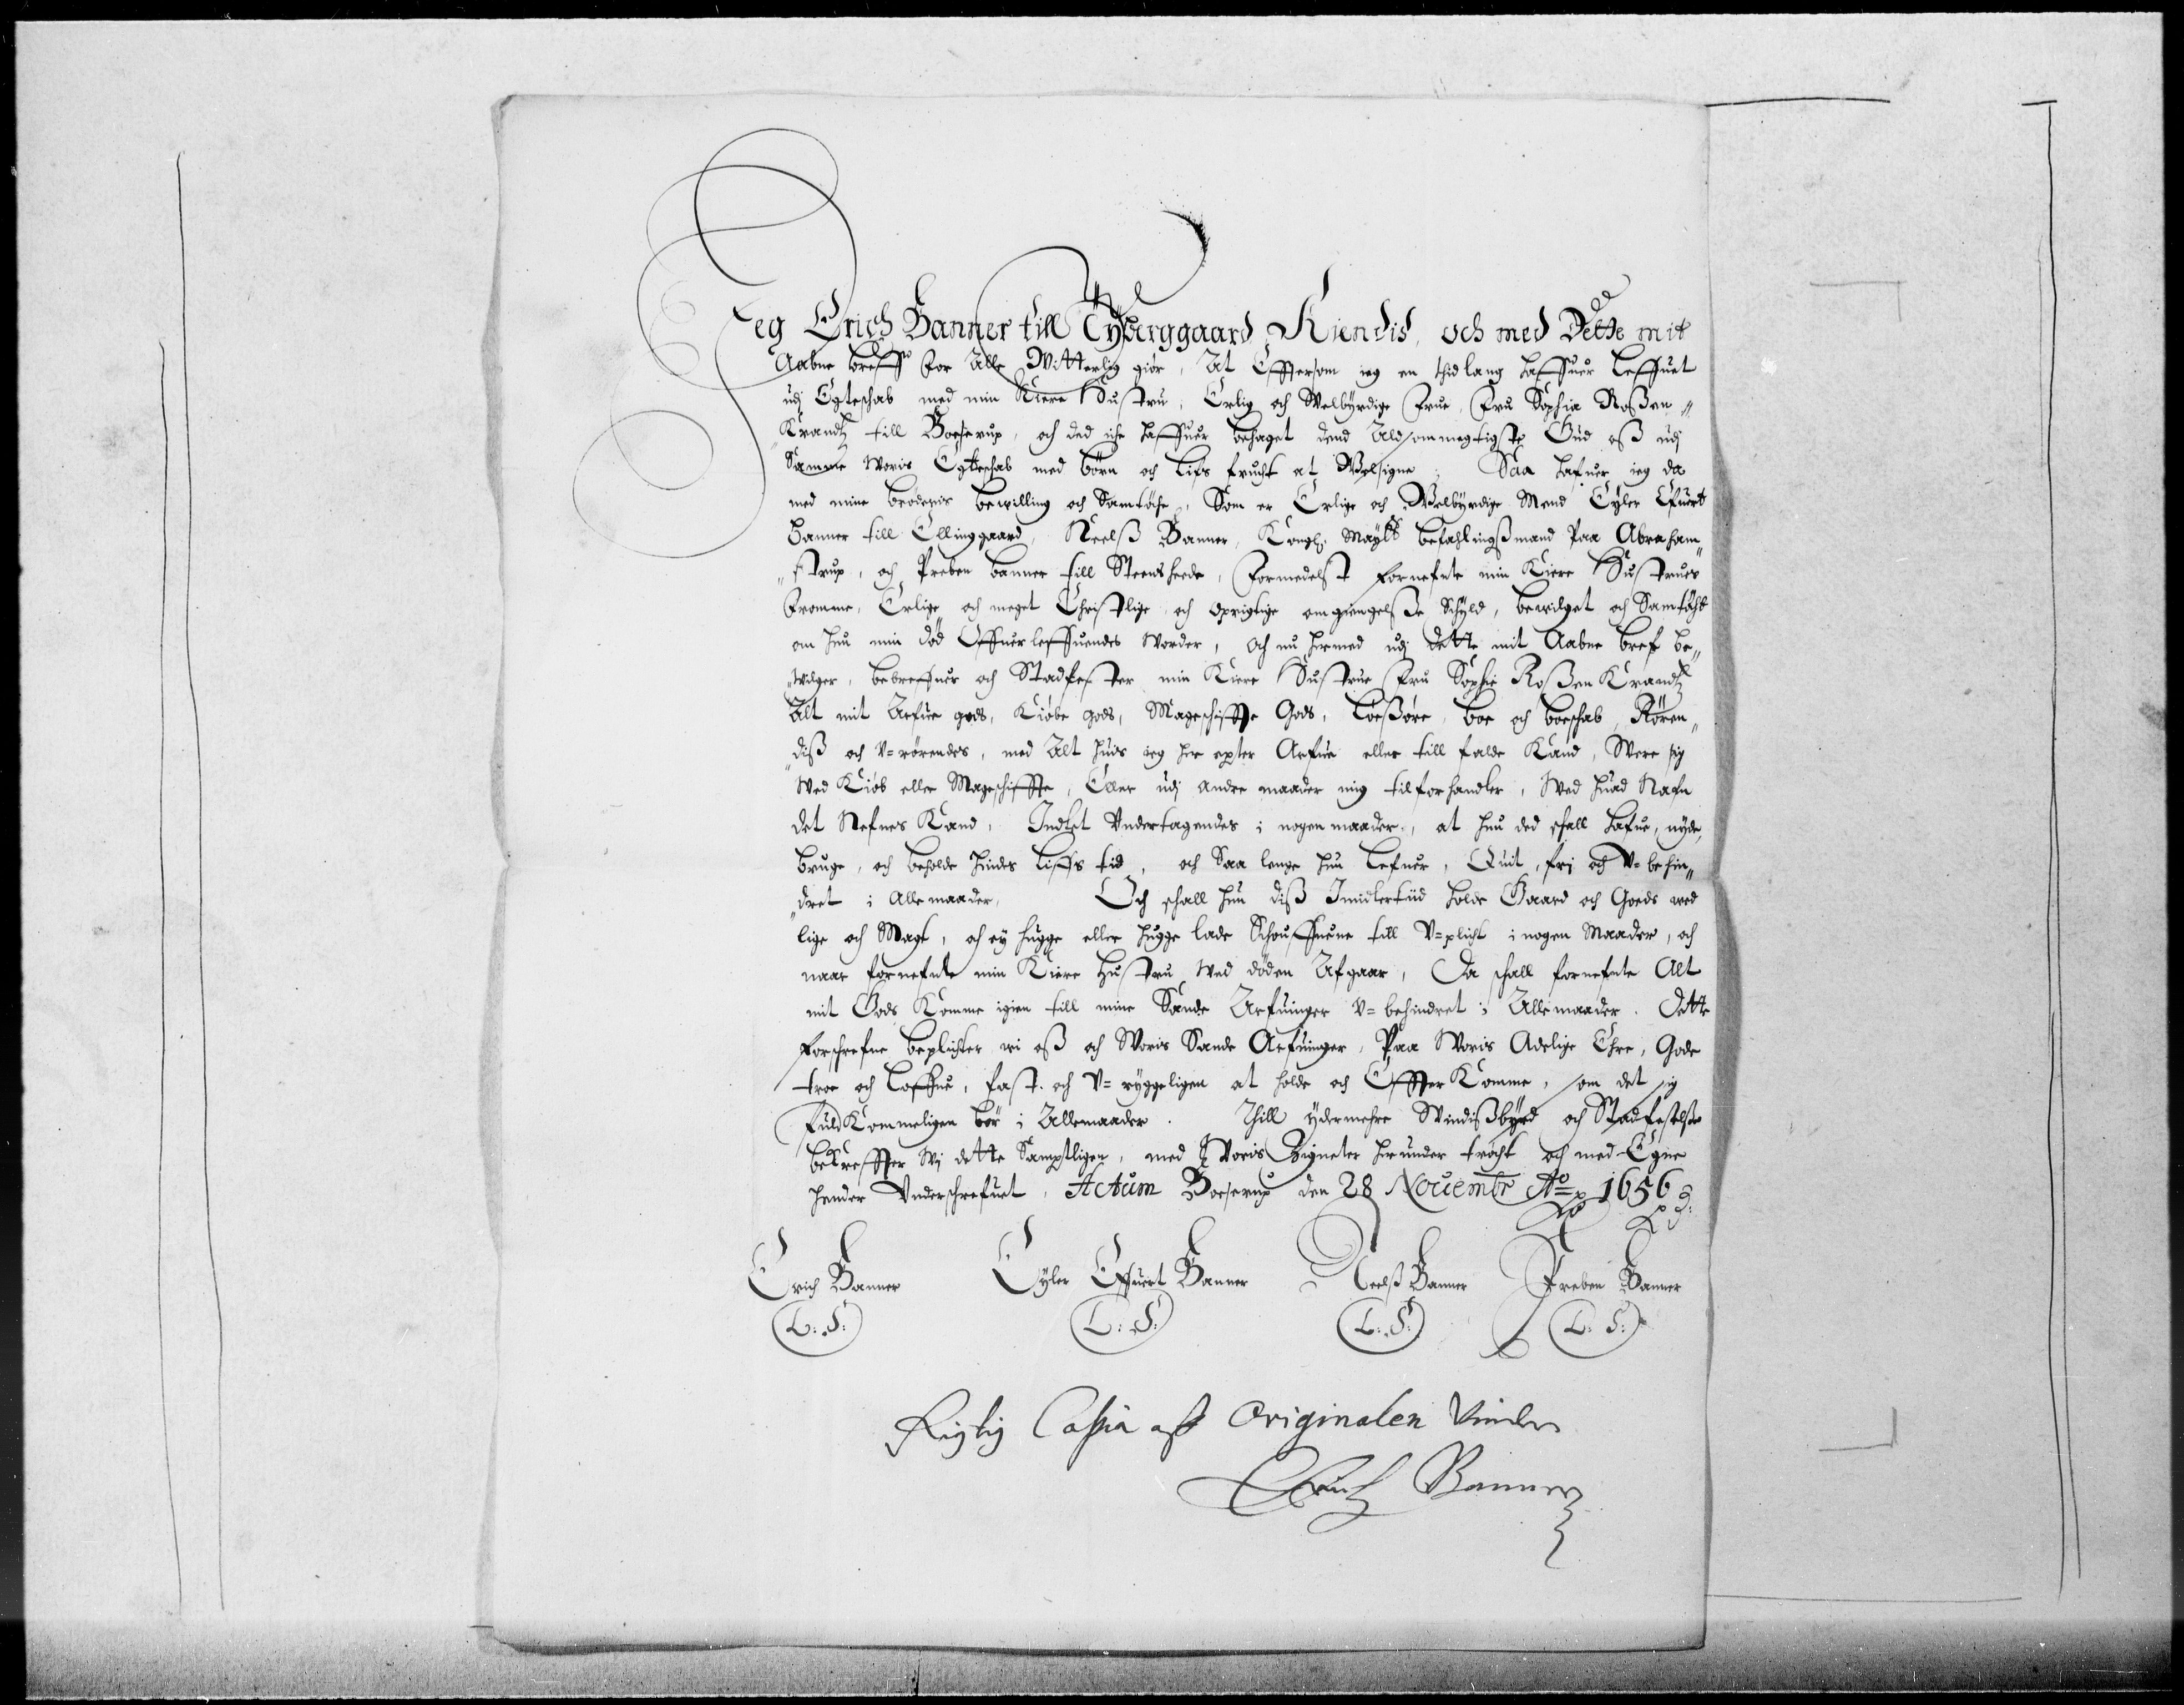 Jeg Erich Banner till Tyberggaard Kiendis, och med Dette mit
Aabne breff for Alle Witterlig giør, At Efftersom ieg en thidlang haffuer leffuet
udj Egteschab med min Kiere Hustru, Erlig och Welbyrdige Frue, Fru Sophia Roßen„
„Krandtz till Boeserup, och ded iche haffuer behaget dend Aldsommegtigste Gud oß udj
Samme Woris Egteschab med børn och lifs frucht at Welsigne; Saa hafuer ieg da
med mine brøderis bewilling och Samtöche, Som er Erlige och Welbyrdige Mend Eyler Efuert
Banner till Ellinggaard, Neelß Banner, Kongl: Maytts befahlingßmand Paa Abraham„
„strup, och Preben Banner till Steensheede, formedelst fornefnte min Kiere Hustrues
fromme, Erlige och meget Christlige och oprigtige omgiengelße Schyld, bewilget och Samtöcht
om hun min død Offuerleffuendes Worder, Och nu hermed udj dette mit Aabne bref be„
„wilger, bebreffuer och Stadfester min Kiere Hustrue Fru Sophie Roßen Krandtz
Alt mit Arfue gods, Kiøbe gods, Mageschiffte Gods, løeßøre, boe och boeschab, Rören„
„diß och V=rörendes, med Alt huis ieg her epter Arfue eller till falde Kand, Were sig
Wed Kiøb eller Mageschiffte, Eller udj andre maader mig tilforhandler, Wed huad Nafn
det Nefnes Kand, Indtet Vndertagendes i nogen maader, at hun ded schall hafue, nyde,
bruge, och beholde hindes liffs tid, och Saa lenge hun lefuer, Quit, frj och V=behin„
„dret i Alle maader. Och schall hun diß Imidlertiid holde Gaard och Goeds wed
lige och Magt, och ey hugge eller hugge lade Schouffuene till V=plicht i nogen Maader, och
naar fornefnte min Kiere Hustru Wed döden Afgaar, Da schall fornefnte Alt
mit Gods Komme igien till mine Sande Arfuinger V=behindret i Allemaader. Dette
forschrefne beplichter wi oß och Woris Sande Arfuinger, Paa Woris Adelige Ehre, Gode
troe och loffue, fast och V=ryggeligen at holde och Effter Komme, som det sig
fuldKommeligen bör i Allemaader. Thill ydermehre Windißbyrd och Stadfestelße
bekreffter Wj dette Samptligen, med Woris Zigneter herunder trøcht och med Egne
hender Vnderschrefuet, Actum Boeserup den 28 Nouembr Ao 1656
Erich Banner Eyler Effuert Banner Neelß Banner Preben Banner
L: S: L: S: L: S: L: S:
Rigtig Copia aff Originalen Vinder
Erich Banner